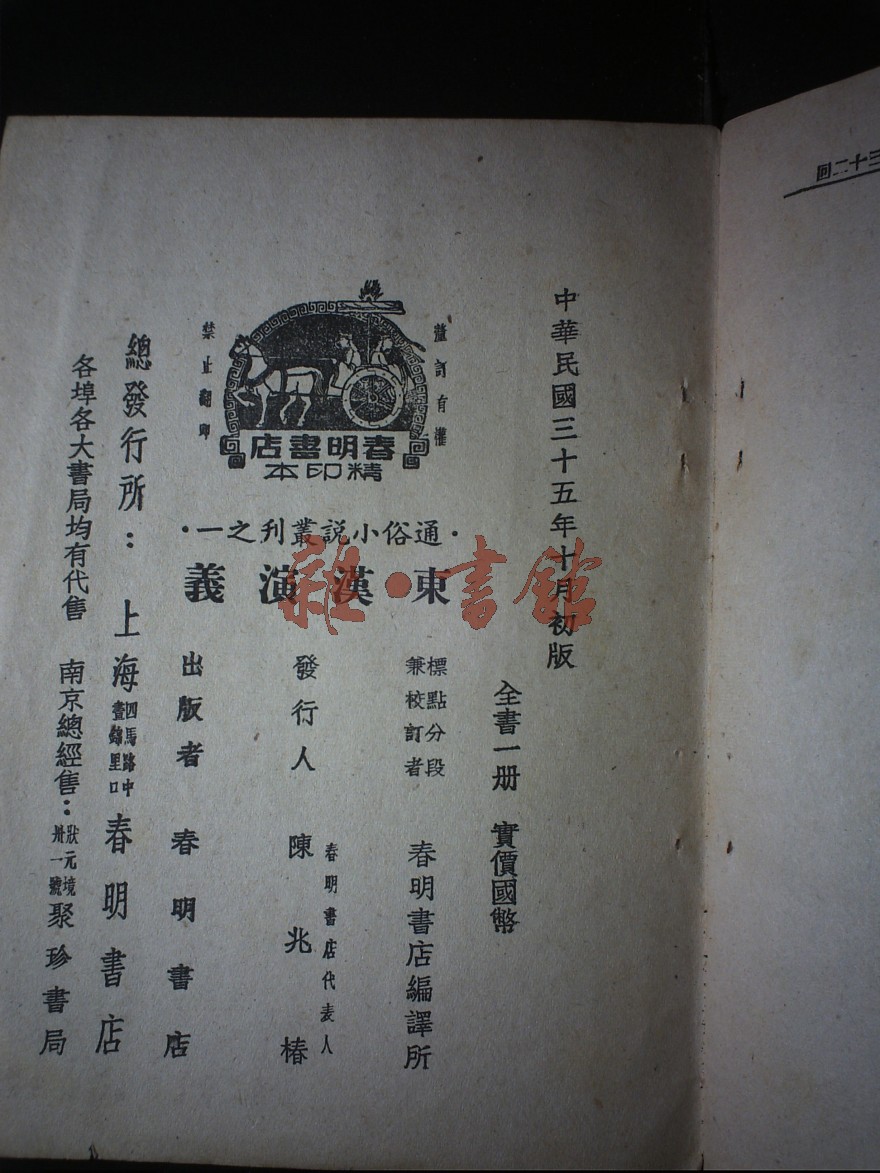 三十二回
中華民國三十五年十月初版
全書一册　實價國幣
釐訂有權
禁止翻印
春明書店
精印本
·通俗小說叢刋之一·
東漢演義
標點分段
兼校訂者
春明書店編譯所
發行人
春明書店代表人
陳兆椿
出版者　春明書店
總發行所：上海
四馬路中
晝錦里口
春明書店
各埠各大書局均有代售
南京總經售：
狀元境
卅一號
聚珍書局
雜·書館